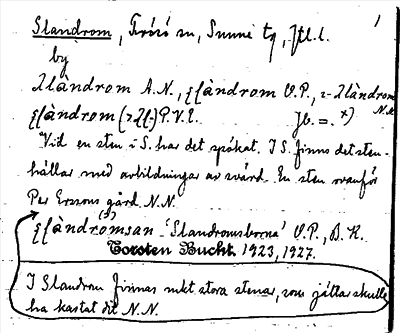 1
Slandrom, Frösö sn, Sunne tg, Jtl. l.
by
Slàndrom A.N., Slàndrom O.P., Slàndrom N.N.
P.V.E. Jb. =. x)
"Vid en sten i S. har det spökat. I S. finns det sten-
hällar med avbildningar av svärd. En sten ovanför
Per Erssons gård. N.N.
'Slandromsborna' O.P., B.K.
Torsten Bucht. 1923, 1927.
I Slandrom finnas mkt stora stenar, som jättar skulle
ha kastat dit N.N.